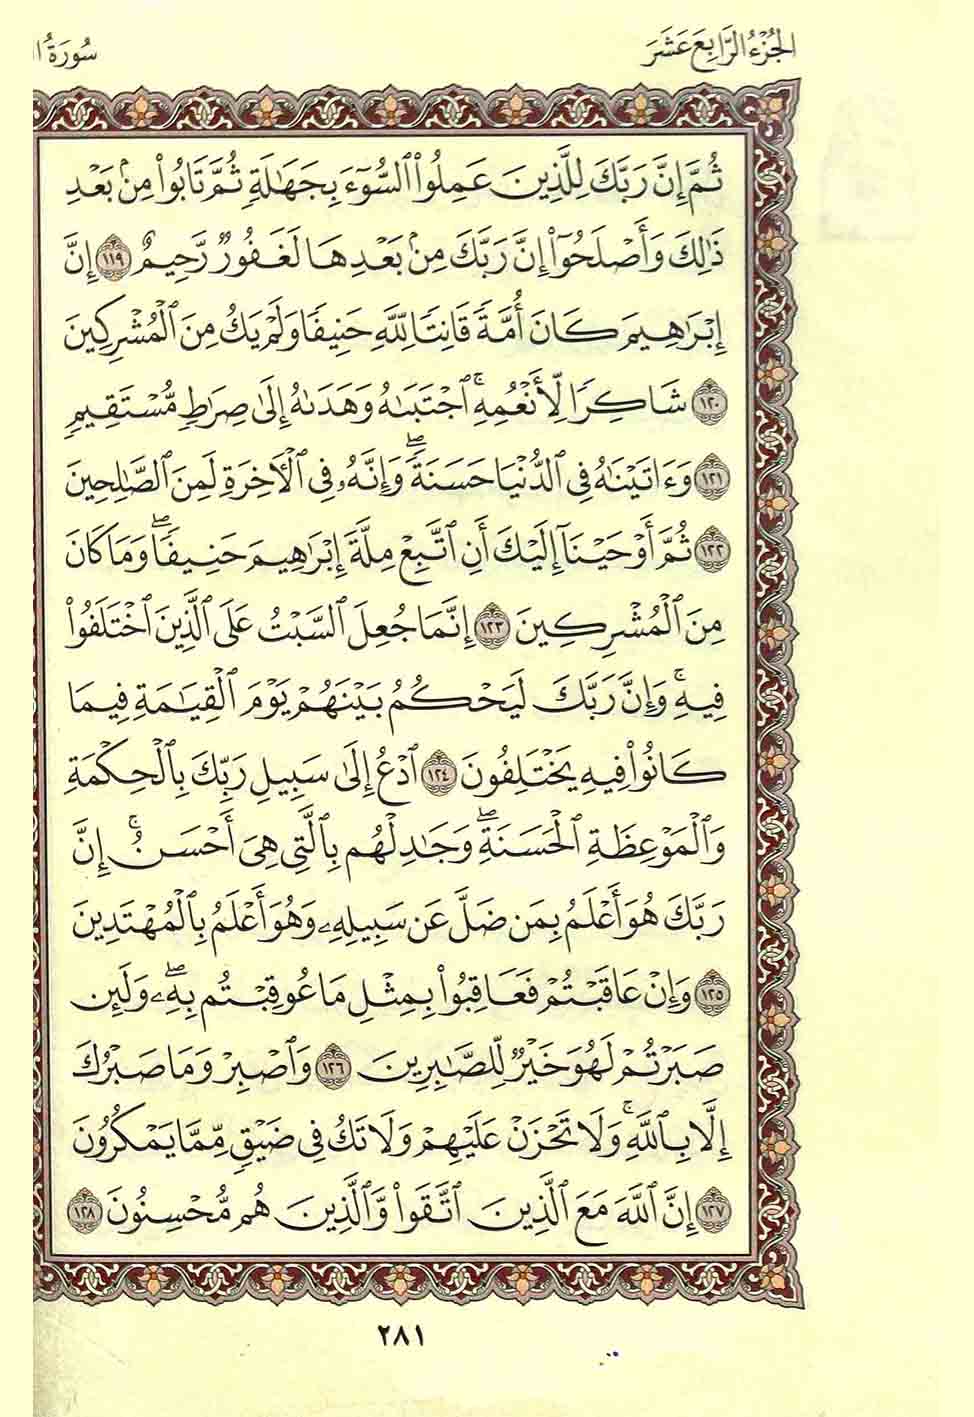 الجُزْءُ الرَّابِعَ عَشَرَ
سُورَةُ
ثُمَّ إِنَّ رَبَّكَ لِلَّذِينَ عَمِلُوا۟ ٱلسُّوٓءَ بِجَهَٰلَةٍ ثُمَّ تَابُوا۟ مِنۢ بَعْدِ
ذَٰلِكَ وَأَصْلَحُوٓا۟ إِنَّ رَبَّكَ مِنۢ بَعْدِهَا لَغَفُورٌ رَّحِيمٌ ١١٩ إِنَّ
إِبْرَٰهِيمَ كَانَ أُمَّةً قَانِتًا لِّلَّهِ حَنِيفًا وَلَمْ يَكُ مِنَ ٱلْمُشْرِكِينَ
١٢٠ شَاكِرًا لِّأَنْعُمِهِ ۚ ٱجْتَبَىٰهُ وَهَدَىٰهُ إِلَىٰ صِرَٰطٍ مُّسْتَقِيمٍ
١٢١ وَءَاتَيْنَٰهُ فِى ٱلدُّنْيَا حَسَنَةً ۖ وَإِنَّهُۥ فِى ٱلْأَخِرَةِ لَمِنَ ٱلصَّٰلِحِينَ
١٢٢ ثُمَّ أَوْحَيْنَآ إِلَيْكَ أَنِ ٱتَّبِعْ مِلَّةَ إِبْرَٰهِيمَ حَنِيفًا ۖ وَمَا كَانَ
مِنَ ٱلْمُشْرِكِينَ ١٢٣ إِنَّمَا جُعِلَ ٱلسَّبْتُ عَلَى ٱلَّذِينَ ٱخْتَلَفُوا۟
فِيهِ ۚ وَإِنَّ رَبَّكَ لَيَحْكُمُ بَيْنَهُمْ يَوْمَ ٱلْقِيَٰمَةِ فِيمَا
كَانُوا۟ فِيهِ يَخْتَلِفُونَ ١٢٤ ٱدْعُ إِلَىٰ سَبِيلِ رَبِّكَ بِٱلْحِكْمَةِ
وَٱلْمَوْعِظَةِ ٱلْحَسَنَةِ ۖ وَجَٰدِلْهُم بِٱلَّتِى هِىَ أَحْسَنُ ۚ إِنَّ
رَبَّكَ هُوَ أَعْلَمُ بِمَن ضَلَّ عَن سَبِيلِهِۦ وَهُوَ أَعْلَمُ بِٱلْمُهْتَدِينَ
١٢٥ وَإِنْ عَاقَبْتُمْ فَعَاقِبُوا۟ بِمِثْلِ مَا عُوقِبْتُم بِهِۦ ۖ وَلَئِن
صَبَرْتُمْ لَهُوَ خَيْرٌ لِّلصَّٰبِرِينَ ١٢٦ وَٱصْبِرْ وَمَا صَبْرُكَ
إِلَّا بِٱللَّهِ ۚ وَلَا تَحْزَنْ عَلَيْهِمْ وَلَا تَكُ فِى ضَيْقٍ مِّمَّا يَمْكُرُونَ
١٢٧ إِنَّ ٱللَّهَ مَعَ ٱلَّذِينَ ٱتَّقَوا۟ وَّٱلَّذِينَ هُم مُّحْسِنُونَ ١٢٨
٢٨١